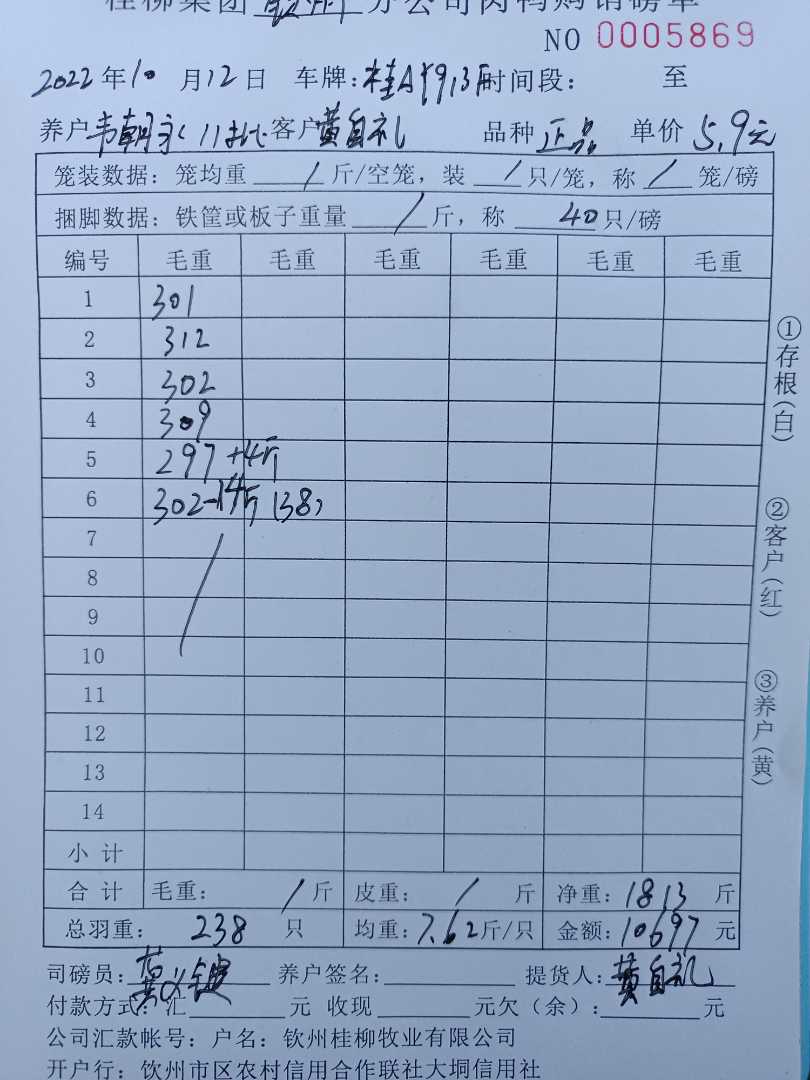 桂柳集团 钦州 分公司肉鸭购销磅单
NO 0005869
2022年10月12日 车牌: 时间段: 至
养户 韦朝 11批 客户 黄自礼 品种 正品 单价 5.9元
笼装数据: 笼均重 / 斤/空笼, 装 / 只/笼, 称 / 笼/磅
捆脚数据: 铁筐或板子重量 / 斤, 称 40 只/磅
编号 毛重 毛重 毛重 毛重 毛重 毛重
1 301
2 312
3 302
4 309
5 297+4斤
6 302-14斤 (38)
7
8
9
10
11
12
13
14
小计
合计 毛重: / 斤 皮重: / 斤 净重: 1813 斤
总羽重: 238 只 均重: 7.62斤/只 金额: 10697 元
司磅员: 养户签名: 提货人: 黄自礼
付款方式: 汇 元 收现 元欠(余): 元
公司汇款帐号: 户名: 钦州桂柳牧业有限公司
开户行: 钦州市区农村信用合作联社大垌信用社
①存根(白)
②客户(红)
③养户(黄)